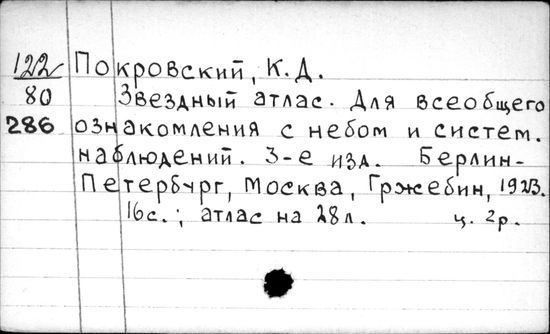 122 Покровский, К.Д.
80 Звездный атлас. Для всеобщего
286 ознакомления с небом и систем.
наблюдений. 3-е изд. Берлин-
Петербург, Москва, Гржебин, 1923.
16с.; атлас на 28л. ц. 2р.